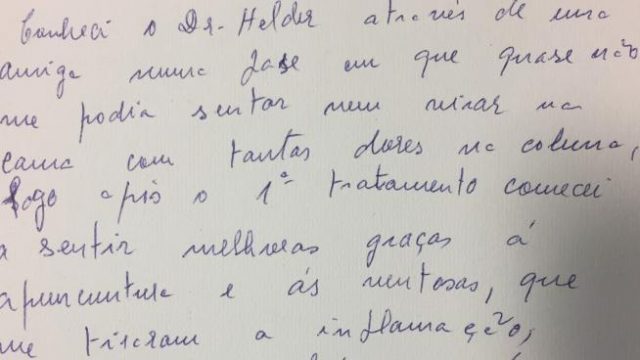 Conheci o Dr. Helder através de uma
amiga numa fase em que quase não
me podia sentar nem virar na
cama com tantas dores na coluna,
logo após o 1º tratamento comecei
a sentir melhoras graças á
apuncuntura e ás ventosas, que
me tiraram a inflamação,